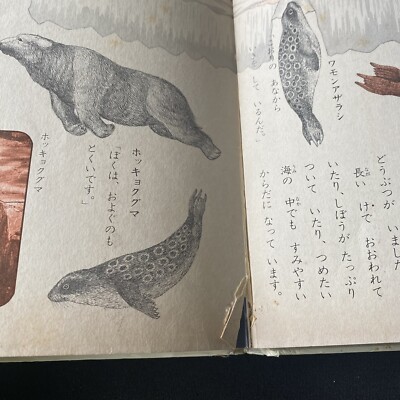 どうぶつが いました
長い けで おおわれて
いたり、しぼうが たっぷり
ついて いたり、つめたい
海の 中でも すみやすい
からだに なって います。
ワモンアザラシ
おりの あなから
して いるんだ。」
ホッキョクグマ
「ぼくは、およぐのも
とくいです。」
ホッキョクグマ